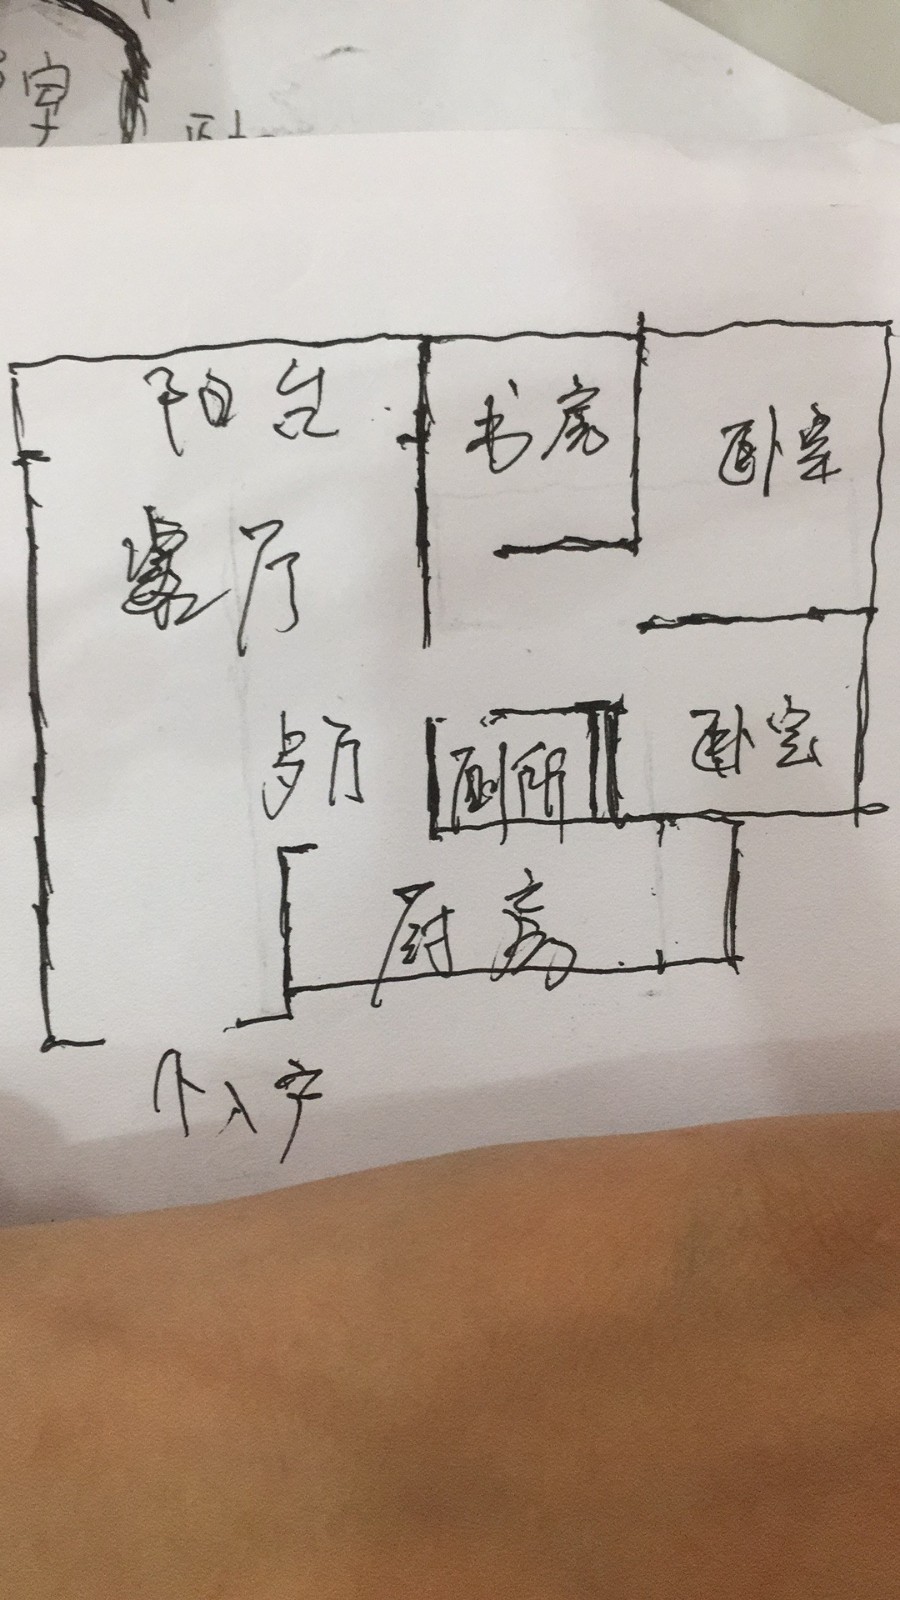 室
阳台
书房
卧室
客厅
卧室
厕所
厨房
个入户